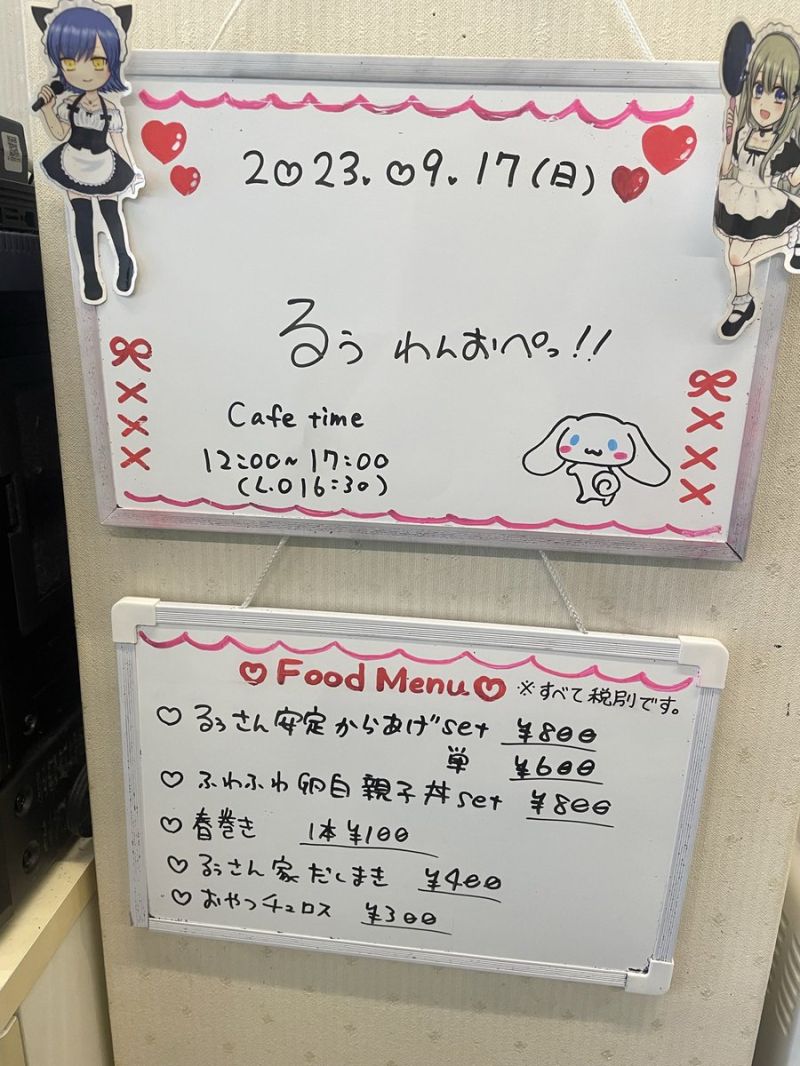 2023.09.17(日)
るぅ わんおぺっ!!
Cafe time
12:00~17:00
(L.O16:30)
Food Menu
※すべて税別です。
るぅさん安定からあげset ¥800
単 ¥600
ふわふわ卵白親子丼set ¥800
春巻き 1本¥100
るぅさん家だしまき ¥400
おやつチュロス ¥300